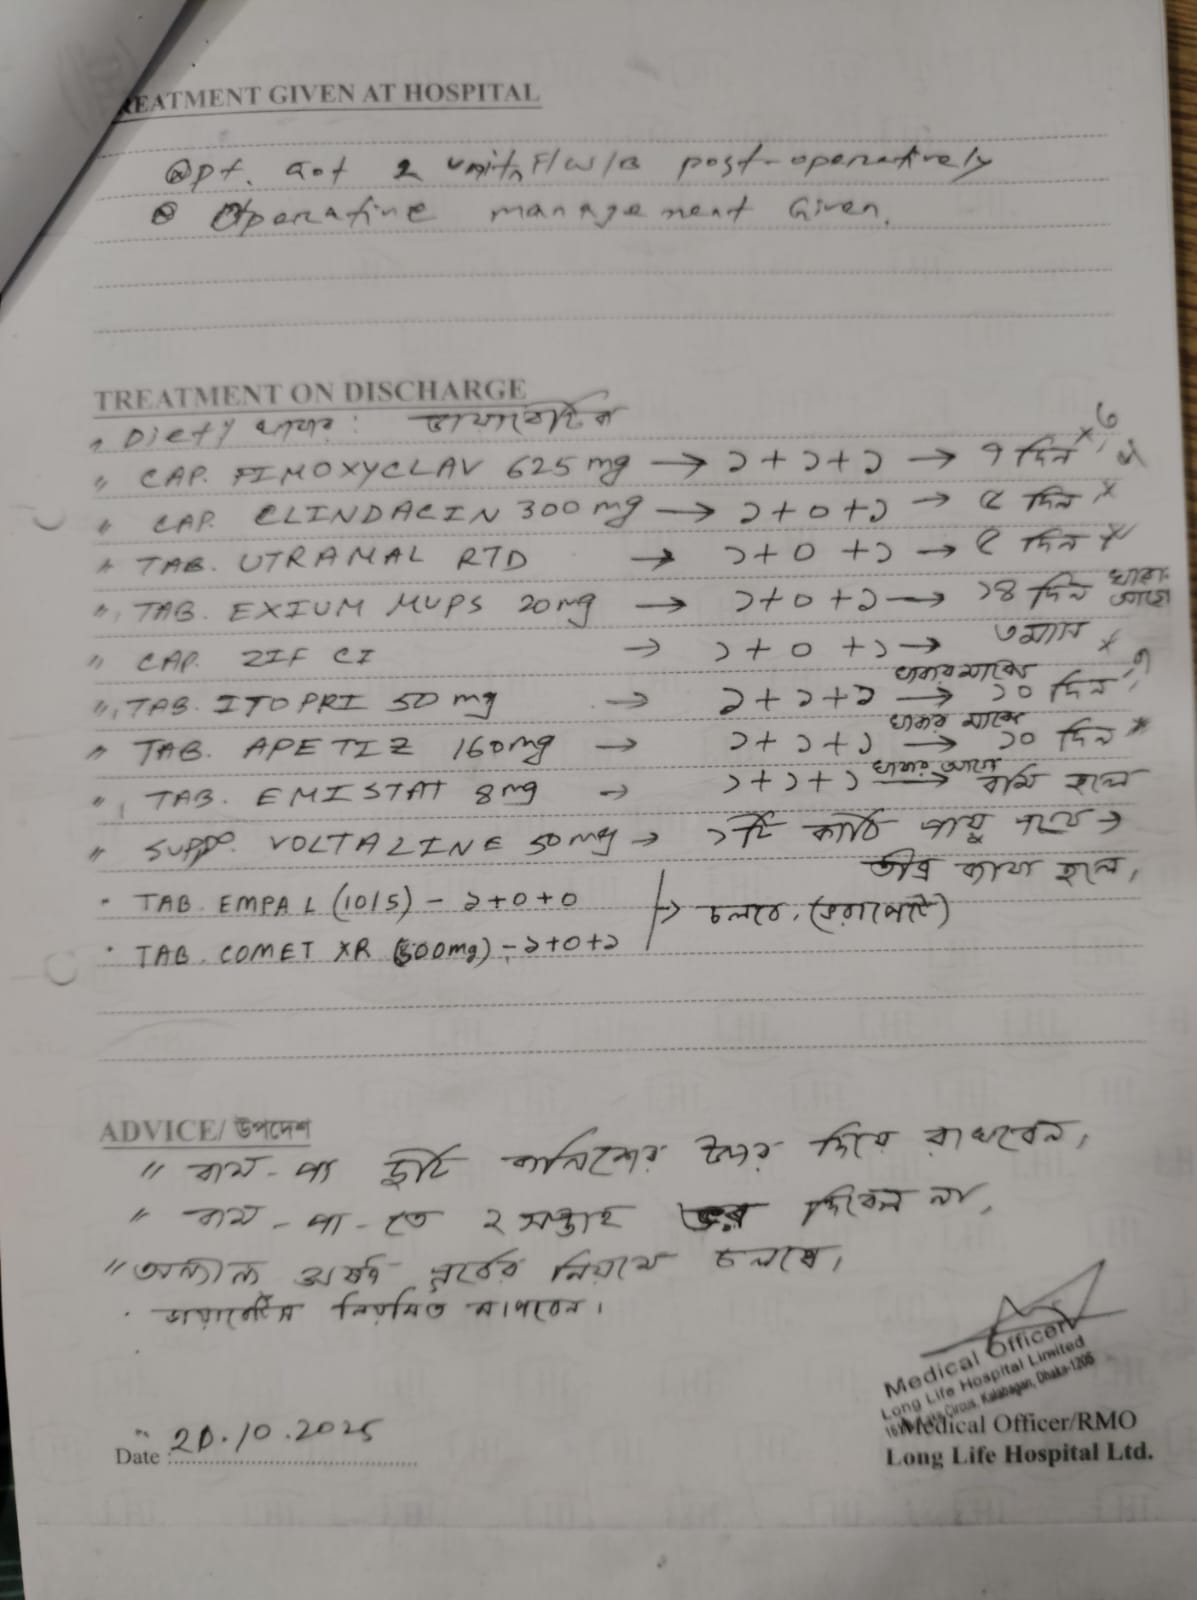 TREATMENT GIVEN AT HOSPITAL
pt. got 2 unit F/W/B post-operatively
Operative management Given.
TREATMENT ON DISCHARGE
Diety খাবার: ডায়াবেটিক
" CAP. FIMOXYCLAV 625 mg → ১+১+১ → ৭ দিন
" CAP. CLINDACIN 300 mg → ১+০+১ → ৫ দিন
" TAB. UTRAMAL RTD → ১+০+১ → ৫ দিন
" TAB. EXIUM MUPS 20mg → ১+০+১ → ১৪ দিন খাবার আগে
" CAP. ZIF CI → ১+০+১ → ৩ মাস
" TAB. ITOPRI 50 mg → ১+১+১ → ১০ দিন
" TAB. APETIZ 160mg → ১+১+১ → ১০ দিন
" TAB. EMISTAT 8mg → ১+১+১ খাবার আগে → বমি হলে
" SUPPO. VOLTALINE 50mg → ১টি কাঠি পায়ু পথে →
তীব্র ব্যথা হলে,
· TAB. EMPA L (10/5) - ১+০+০
→ চলবে. (ভরাপেটে)
· TAB. COMET XR (500mg) - ১+০+১
ADVICE/ উপদেশ
" বাম-পা দুটি বালিশের উপর দিয়ে রাখবেন,
" বাম-পা-তে ২ সপ্তাহ ভর দিবেন না,
" অন্যান্য ঔষধ পূর্বের নিয়মে চলবে,
· ডায়াবেটিস নিয়মিত মাপবেন।
Medical Officer
Long Life Hospital Limited
Circus, Kalabagan, Dhaka-1205
Date : 20.10.2025
Medical Officer/RMO
Long Life Hospital Ltd.